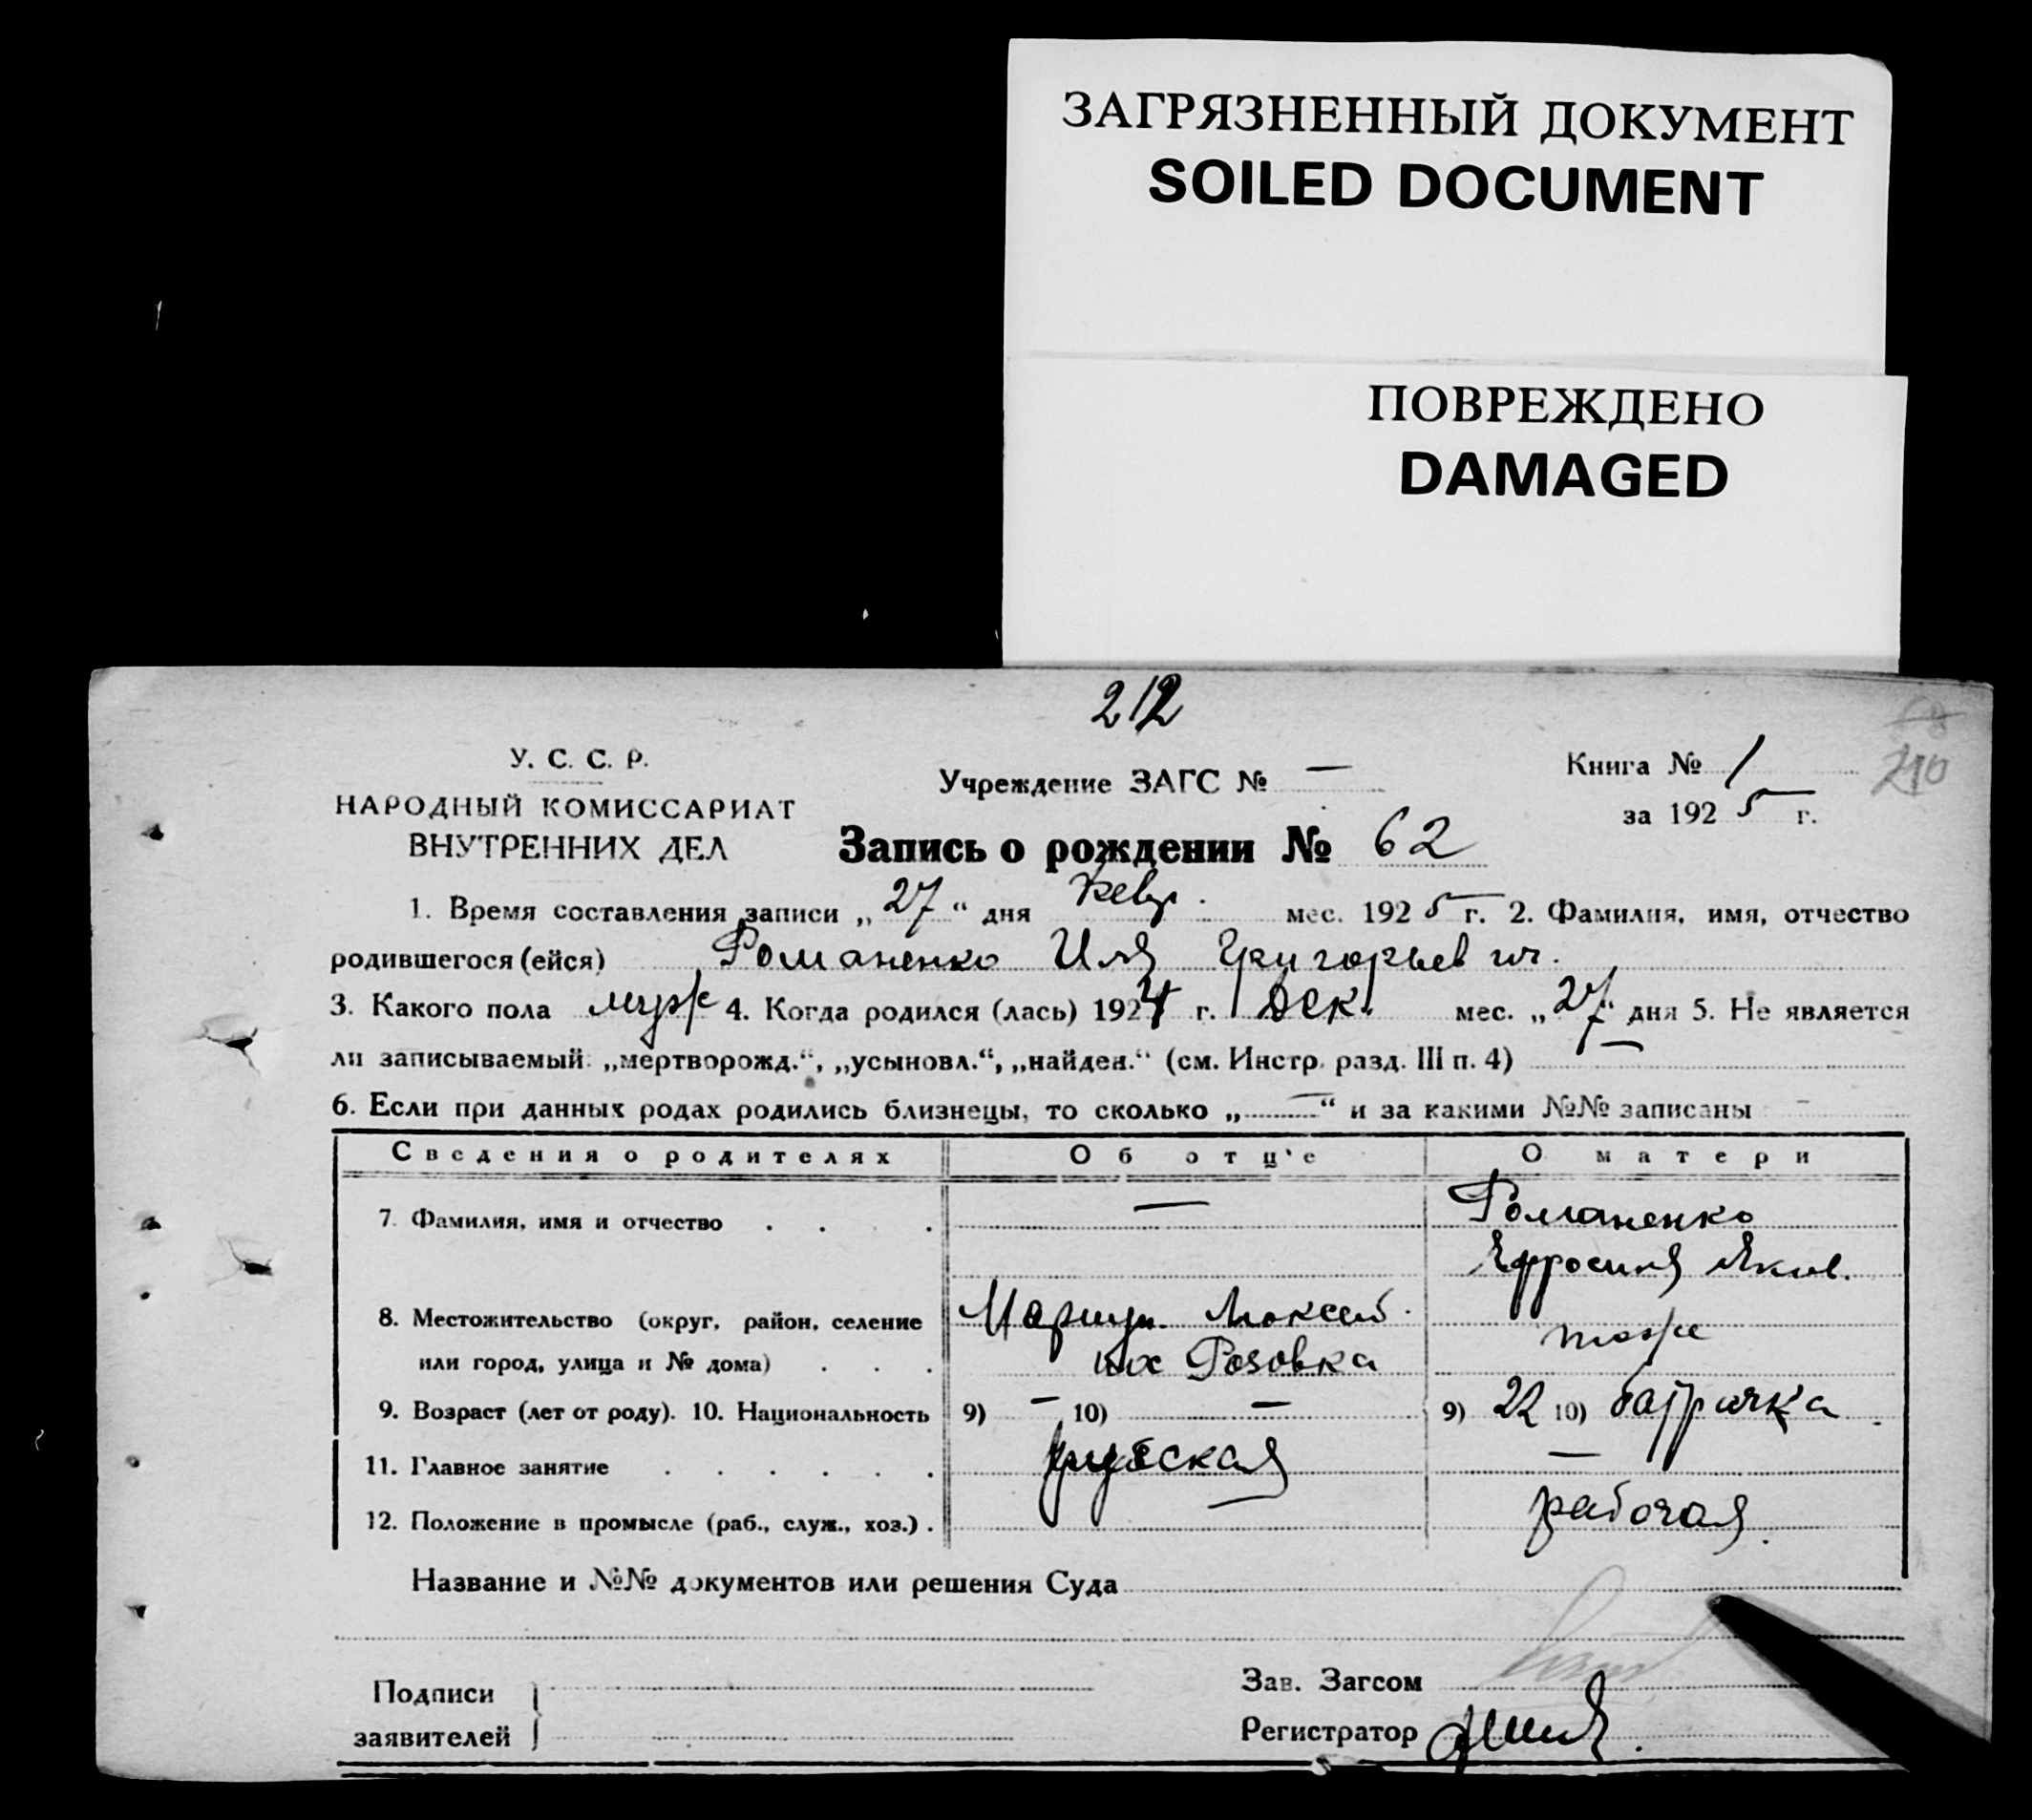 ЗАГРЯЗНЕННЫЙ ДОКУМЕНТ
SOILED DOCUMENT
ПОВРЕЖДЕНО
DAMAGED
212
У. С. С. Р.
НАРОДНЫЙ КОМИССАРИАТ
ВНУТРЕННИХ ДЕЛ
Учреждение ЗАГС № —
Книга № 1
210
за 1925 г.
Запись о рождении № 62
1. Время составления записи „27“ дня мес. 1925 г. 2. Фамилия, имя, отчество
родившегося (ейся) Романенко Илья Григорьевич.
3. Какого пола муж 4. Когда родился (лась) 1924 г. Дек. мес. „27“ дня 5. Не является
ли записываемый „мертворожд.“, „усыновл.“, „найден.“ (см. Инстр. разд. III п. 4) —
6. Если при данных родах родились близнецы, то сколько „—“ и за какими №№ записаны —
Сведения о родителях Об отце О матери
7. Фамилия, имя и отчество — Романенко
Ефросиня Яковл.
8. Местожительство (округ, район, селение Мариуп.
или город, улица и № дома) Розовка тоже
9. Возраст (лет от роду). 10. Национальность 9) — 10) — 9) 22 10) батрачка
11. Главное занятие —
12. Положение в промысле (раб., служ., хоз.) . рабочая.
Название и №№ документов или решения Суда
Подписи
заявителей
Зав. Загсом
Регистратор